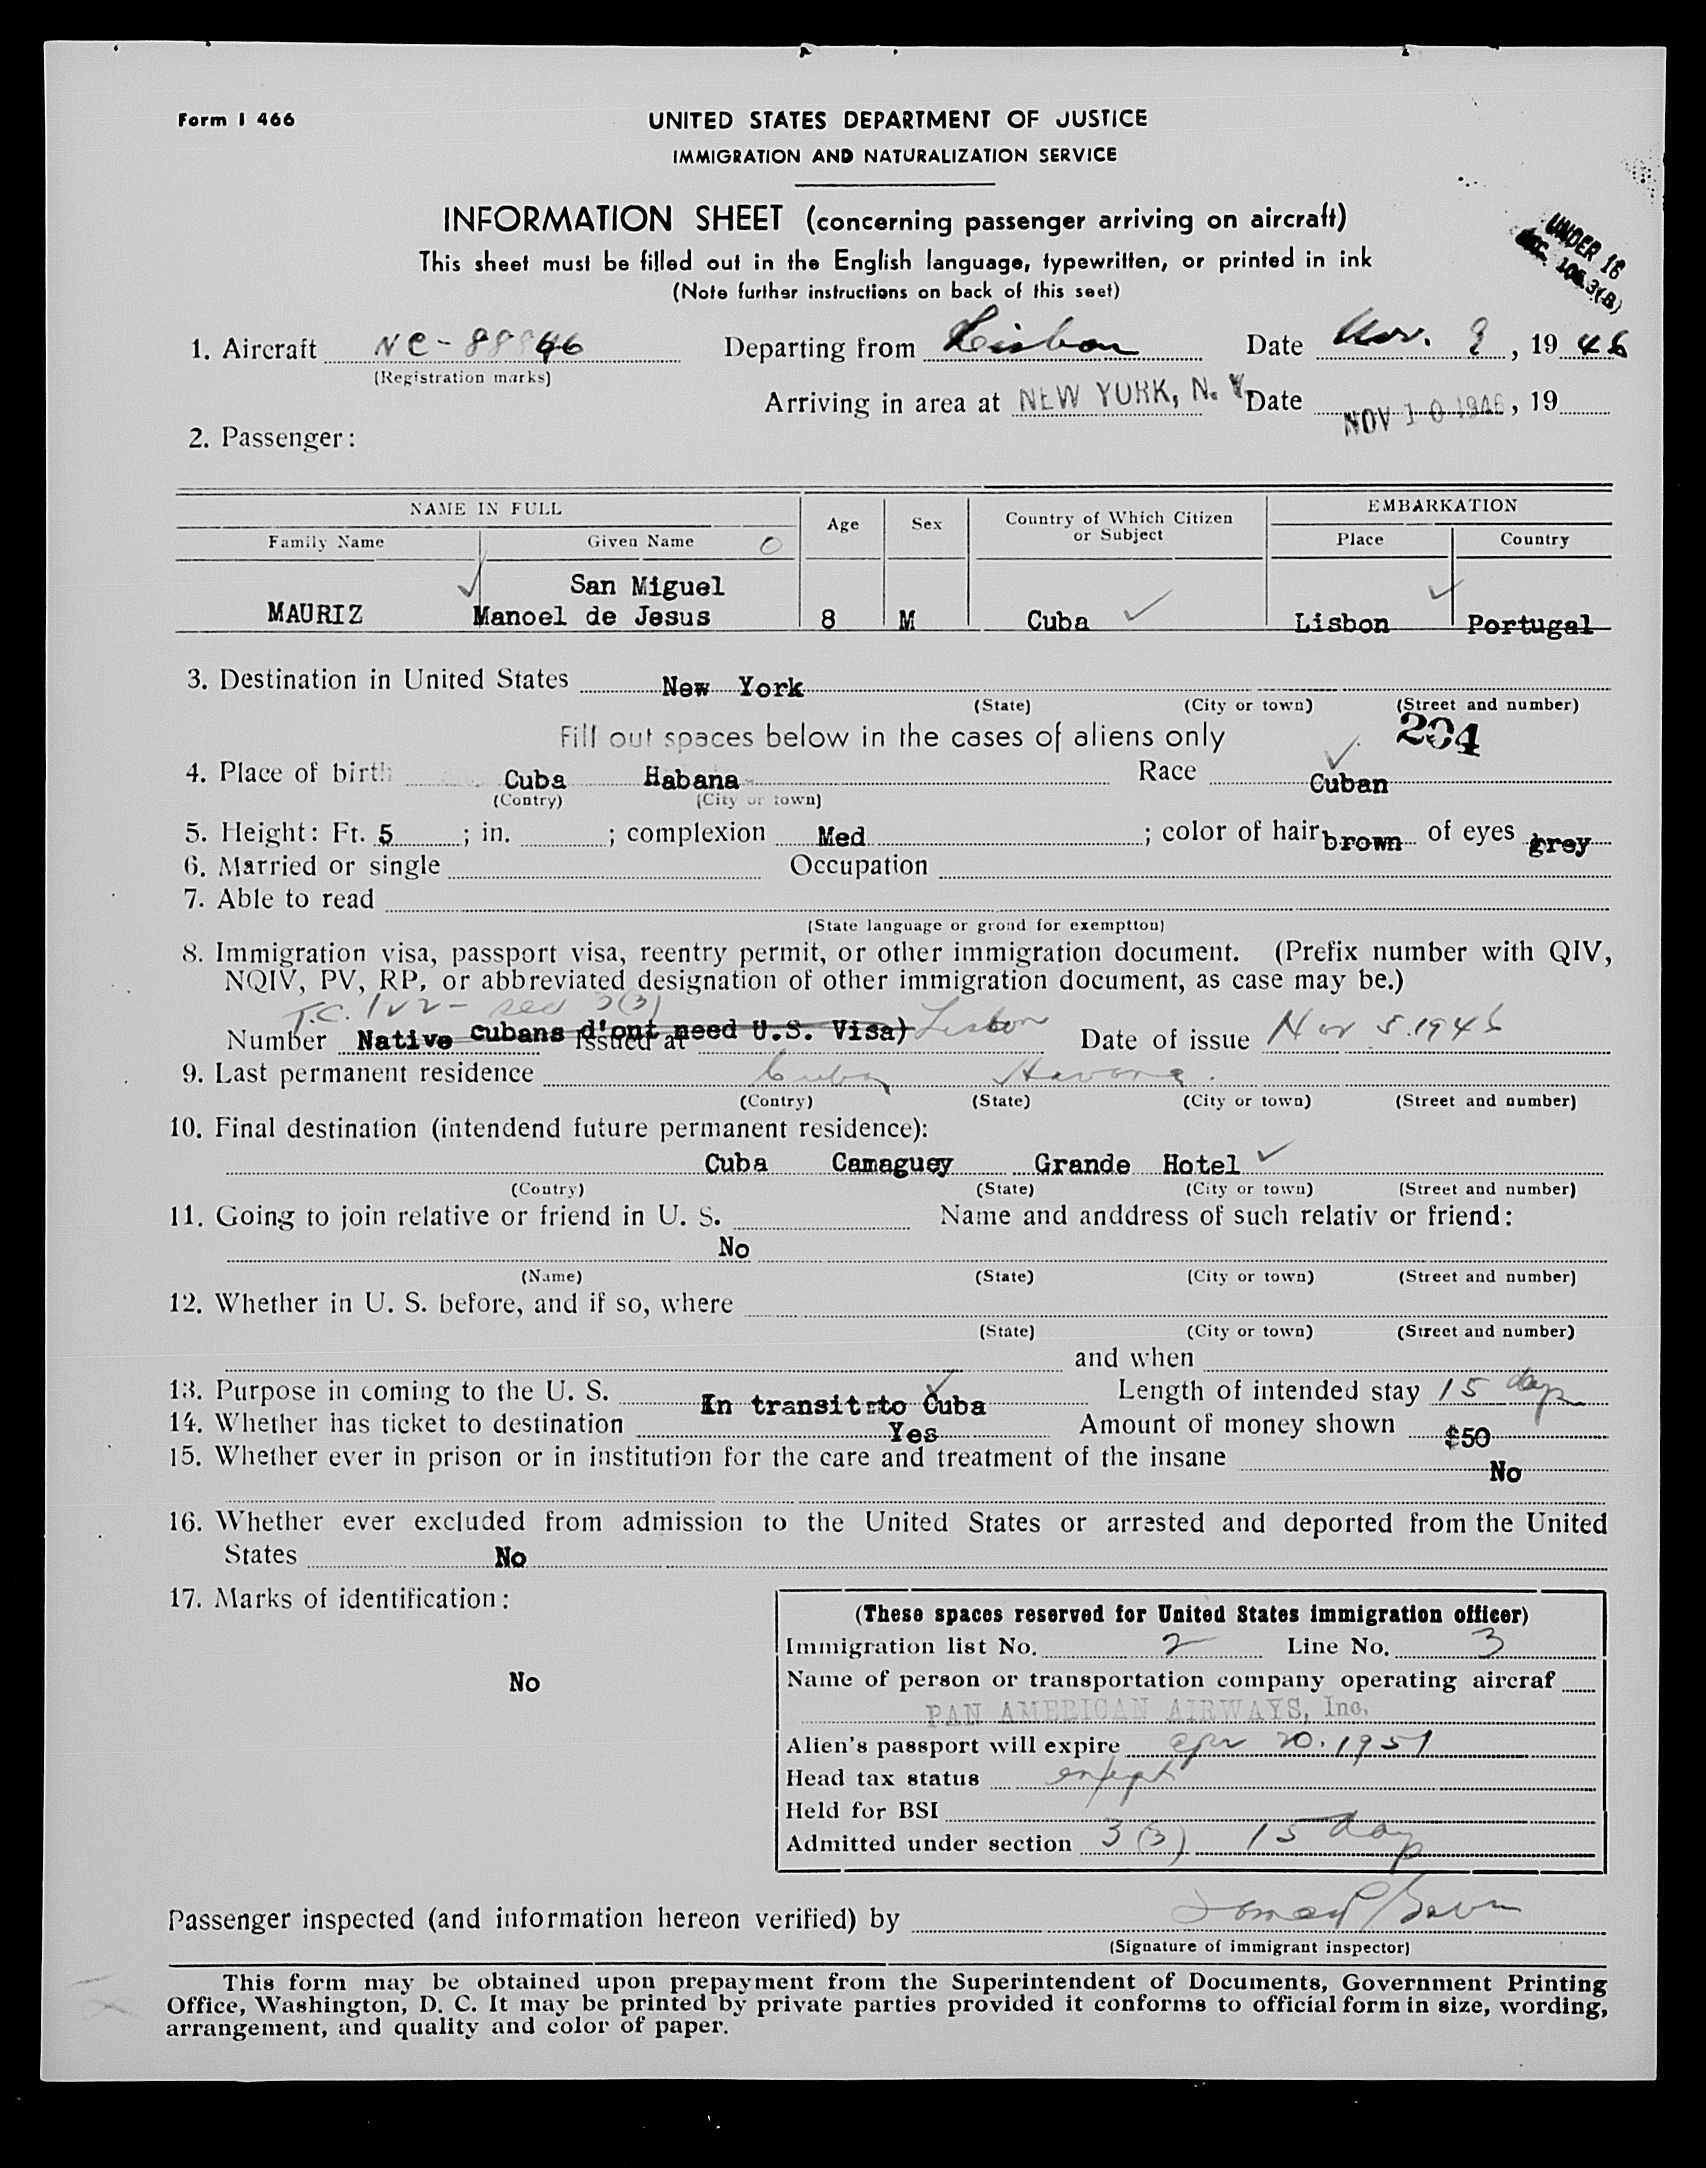 Form I 466
UNITED STATES DEPARTMENT OF JUSTICE
IMMIGRATION AND NATURALIZATION SERVICE
INFORMATION SHEET (concerning passenger arriving on aircraft)
This sheet must be filled out in the English language, typewritten, or printed in ink
(Note further instructions on back of this seet)
UNDER 16
SEC. 106.3(B)
1. Aircraft NC-88846 Departing from Lisbon Date Nov. 9, 1946
(Registration marks)
Arriving in area at NEW YORK, N. Y. Date NOV 10 1946, 19
2. Passenger:
NAME IN FULL Age Sex Country of Which Citizen or Subject EMBARKATION
Family Name Given Name Place Country
San Miguel
MAURIZ Manoel de Jesus 8 M Cuba Lisbon Portugal
3. Destination in United States New York
(State) (City or town) (Street and number)
Fill out spaces below in the cases of aliens only 204
4. Place of birth Cuba Habana Race Cuban
(Contry) (City or town)
5. Height: Ft. 5 ; in. ; complexion Med ; color of hair brown of eyes grey
6. Married or single Occupation
7. Able to read
(State language or grond for exemptton)
8. Immigration visa, passport visa, reentry permit, or other immigration document. (Prefix number with QIV,
NQIV, PV, RP, or abbreviated designation of other immigration document, as case may be.)
T.C. 122 - sec 3(3)
Number Native cubans d'ont need U.S. Visa) Issued at Lisbon Date of issue Nov 5. 1946
9. Last permanent residence Cuba Havana.
(Contry) (State) (City or town) (Street and number)
10. Final destination (intendend future permanent residence):
Cuba Camaguey Grande Hotel
(Contry) (State) (City or town) (Street and number)
11. Going to join relative or friend in U. S. Name and anddress of such relativ or friend:
No
(Name) (State) (City or town) (Street and number)
12. Whether in U. S. before, and if so, where
(State) (City or town) (Street and number)
and when
13. Purpose in coming to the U. S. In transit to Cuba Length of intended stay 15 days
14. Whether has ticket to destination Yes Amount of money shown $50
15. Whether ever in prison or in institution for the care and treatment of the insane No
16. Whether ever excluded from admission to the United States or arrested and deported from the United
States No
17. Marks of identification:
No
(These spaces reserved for United States immigration officer)
Immigration list No. 2 Line No. 3
Name of person or transportation company operating aircraf
PAN AMERICAN AIRWAYS, Inc.
Alien's passport will expire Apr 20. 1951
Head tax status exempt
Held for BSI
Admitted under section 3(3) 15 days
Passenger inspected (and information hereon verified) by
(Signature of immigrant inspector)
This form may be obtained upon prepayment from the Superintendent of Documents, Government Printing
Office, Washington, D. C. It may be printed by private parties provided it conforms to official form in size, wording,
arrangement, and quality and color of paper.